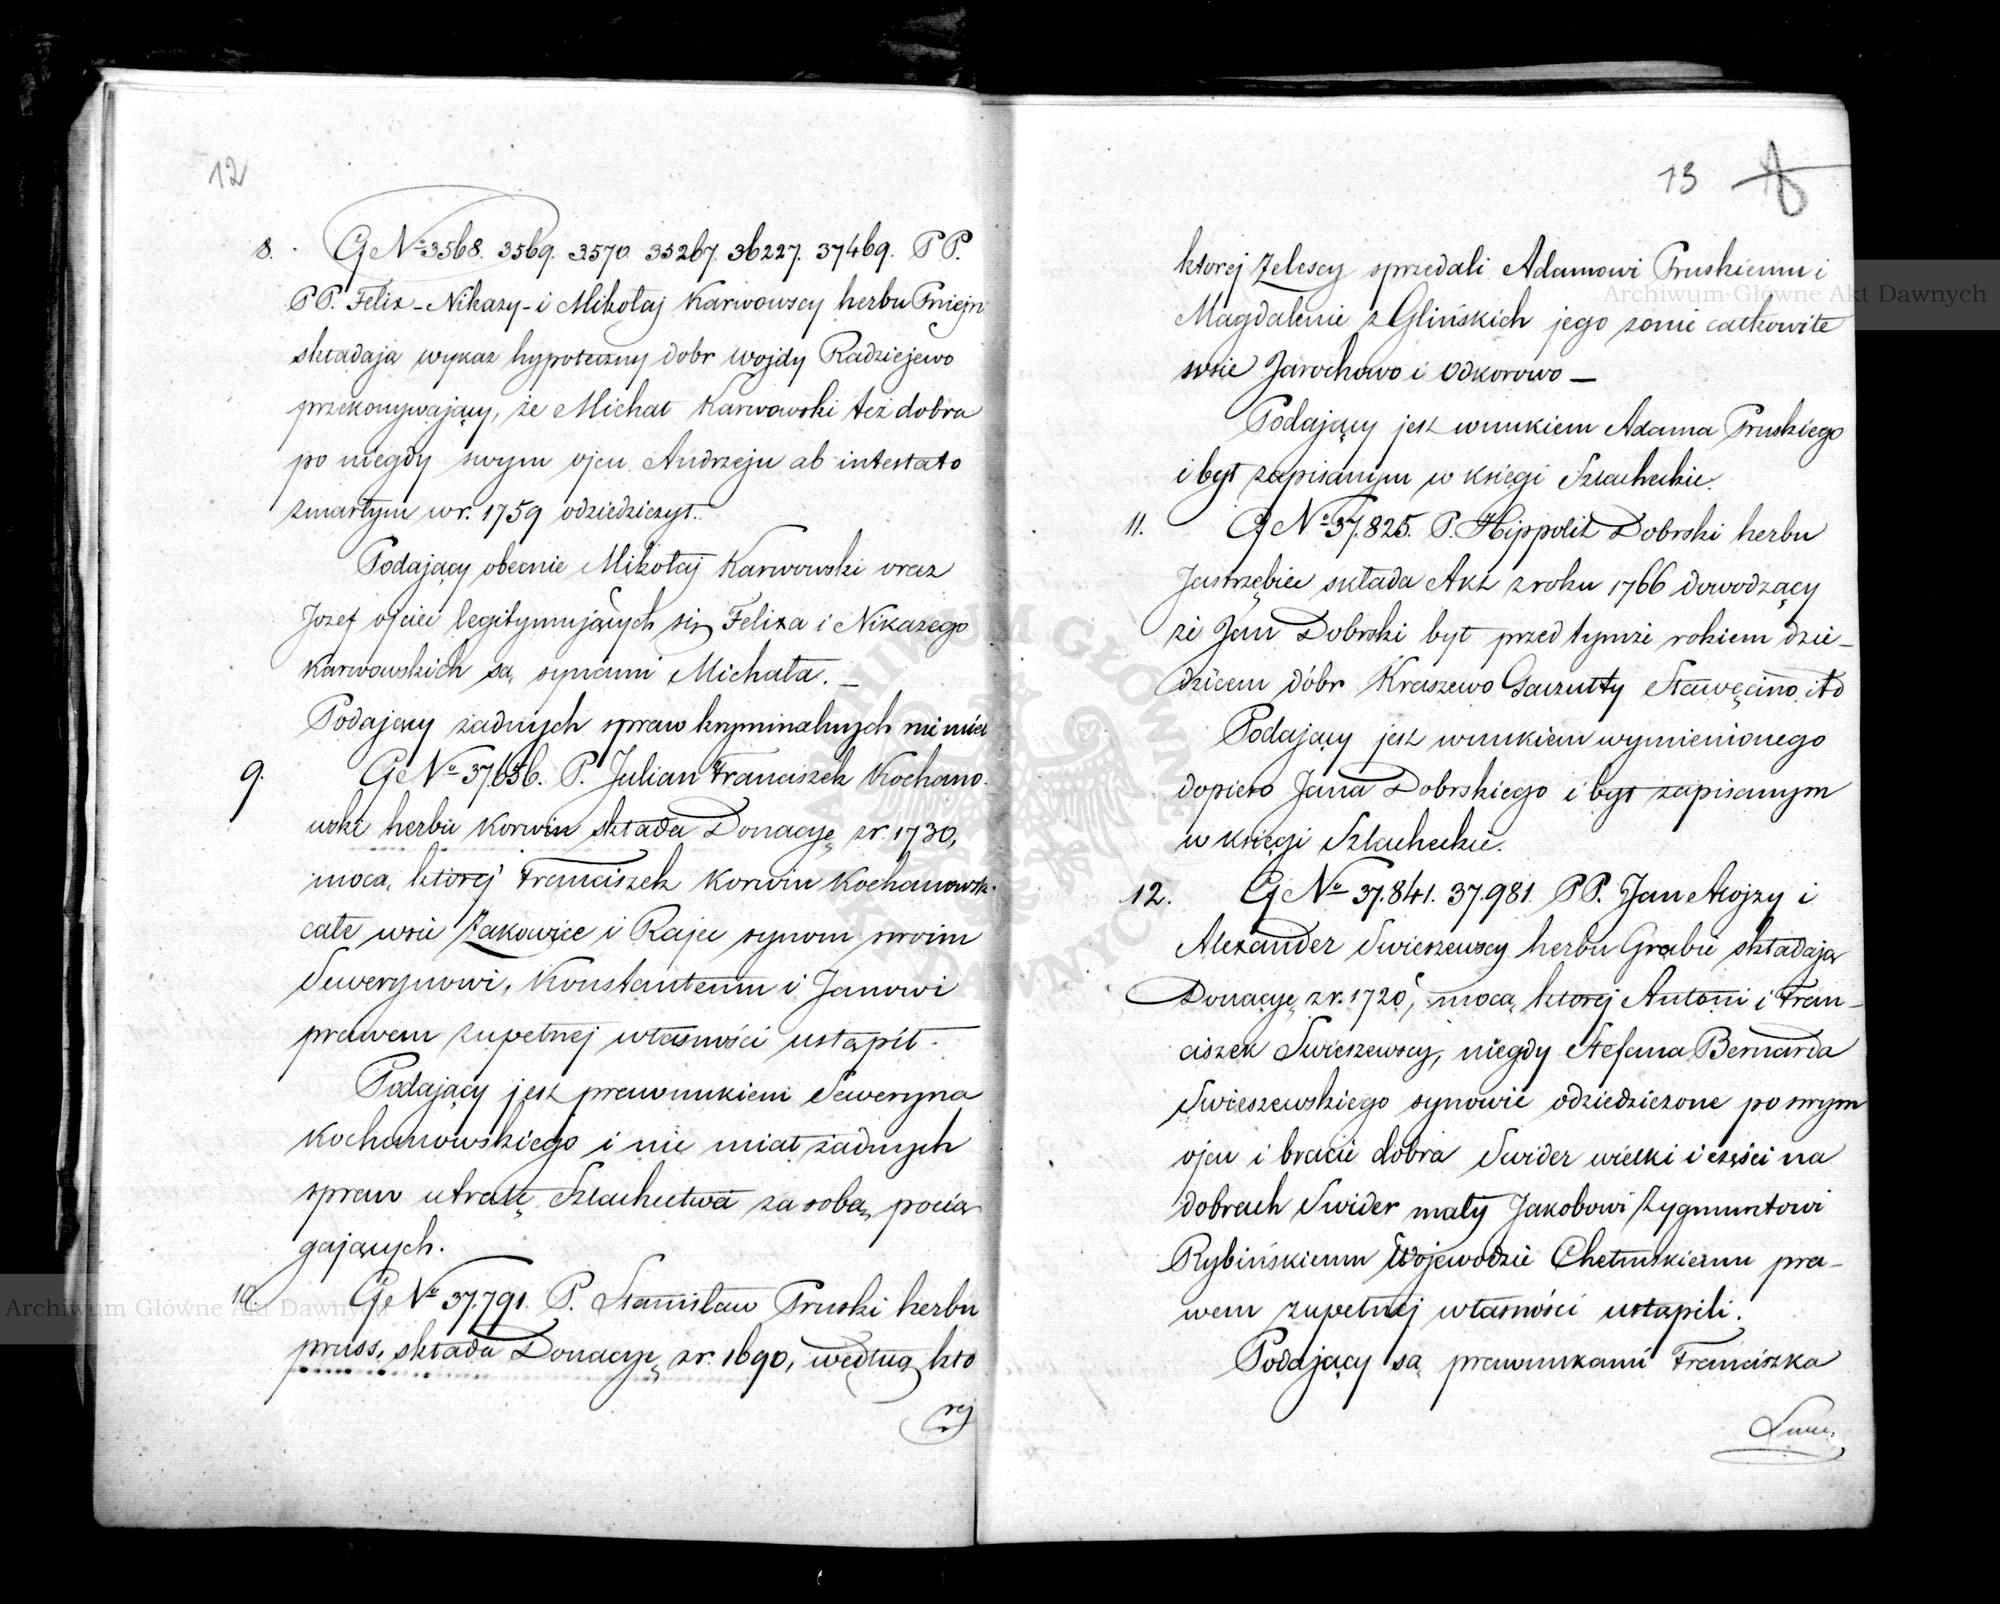 12
8. G No 3568. 3569. 3570. 35267. 36227. 37469. PP.
PP. Felix - Nikazy - i Mikołaj Karwowscy herbu Pniejn
składają wykaz hypoteczny dobr wojdy Radziejewo
przekonywający, że Michał Karwowski też dobra
po niegdy swym ojcu Andrzeju ab intestato
zmarłym w r. 1759 odziedziczył.
Podający obecnie Mikołaj Karwowski oraz
Jozef ojciec legitymujących się Felixa i Nikazego
Karwowskich są synami Michała. _
Podający żadnych spraw kryminalnych nie mieli
9. G No 37,656. P. Julian Franciszek Kochano-
wski herbu Korwin składa Donacyę z r. 1730,
mocą, ktorej Franciszek Korwin Kochanowski
całe wsie Zakowice i Rajec synom swoim
Sewerynowi, Konstantemu i Janowi
prawem zupełnej własności ustąpił.
Podający jest prawnukiem Seweryna
Kochanowskiego i nie miał żadnych
spraw utratę Szlachectwa za sobą pocią
gających.
10. G No 37.791. P. Stanisław Pruski herbu
pruss, składa Donacyę z r. 1690, według kto
rej
13
ktorej Zelescy sprzedali Adamowi Pruskiemu i
Magdalenie z Glińskich jego zonie całkowite
wsie Jarochowo i Odkorowo —
Podający jest wnukiem Adama Pruskiego
i był zapisanym w księgi Szlacheckie.
11. G No 37.825. P. Hippolit Dobrski herbu
Jastrzębiec składa Akt z roku 1766 dowodzący
że Jan Dobrski był przed tymże rokiem dzie-
dzicem dóbr Kraszewo Gaczułty Sławęcino itd
Podający jest wnukiem wymienionego
dopiero Jana Dobrskiego i był zapisanym
w księgi Szlacheckie.
12. G No 37.841. 37.981. PP. Jan Alojzy i
Alexander Swieszewscy herbu Grabie składają
Donacyę z r. 1720, mocą ktorej Antoni i Fran-
ciszek Swieszewscy, niegdy Stefana Bernarda
Swieszewskiego synowie odziedziczone po swym
ojcu i bracie dobra Swider wielki i części na
dobrach Swider mały Jakobowi Zygmuntowi
Rybińskiemu Wojewodzie Chełmskiemu pra-
wem zupełnej własności ustąpili.
Podający są prawnukami Franciszka
Archiwum Główne Akt Dawnych
Archiwum Główne Akt Dawnych
ARCHIWUM GŁÓWNE AKT DAWNYCH